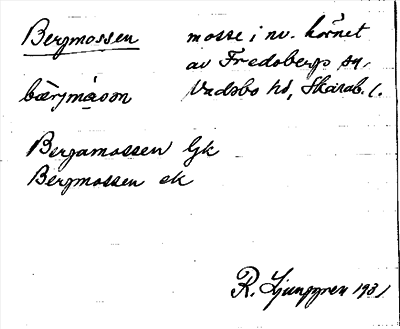 Bergmossen mosse i nv. hörnet
av Fredsbergs sn.
bærjmåsᴏn Vadsbo hd, Skarab. l.
Bergamossen Gk
Bergmossen ek
R. Ljunggren 1931